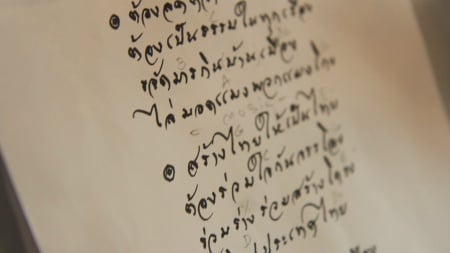 ๏ ต้องลด
ต้องเป็นธรรมในทุกเรื่อง
ขจัดมารกินบ้านเมือง
ไล่มอดแมงพวกแมงไทย
๏ สร้างไทยให้เป็นไทย
ต้องร่วมใจกันจรรโลง
ร่วมร่างร่วมสร้างโครง
ประเทศไทย